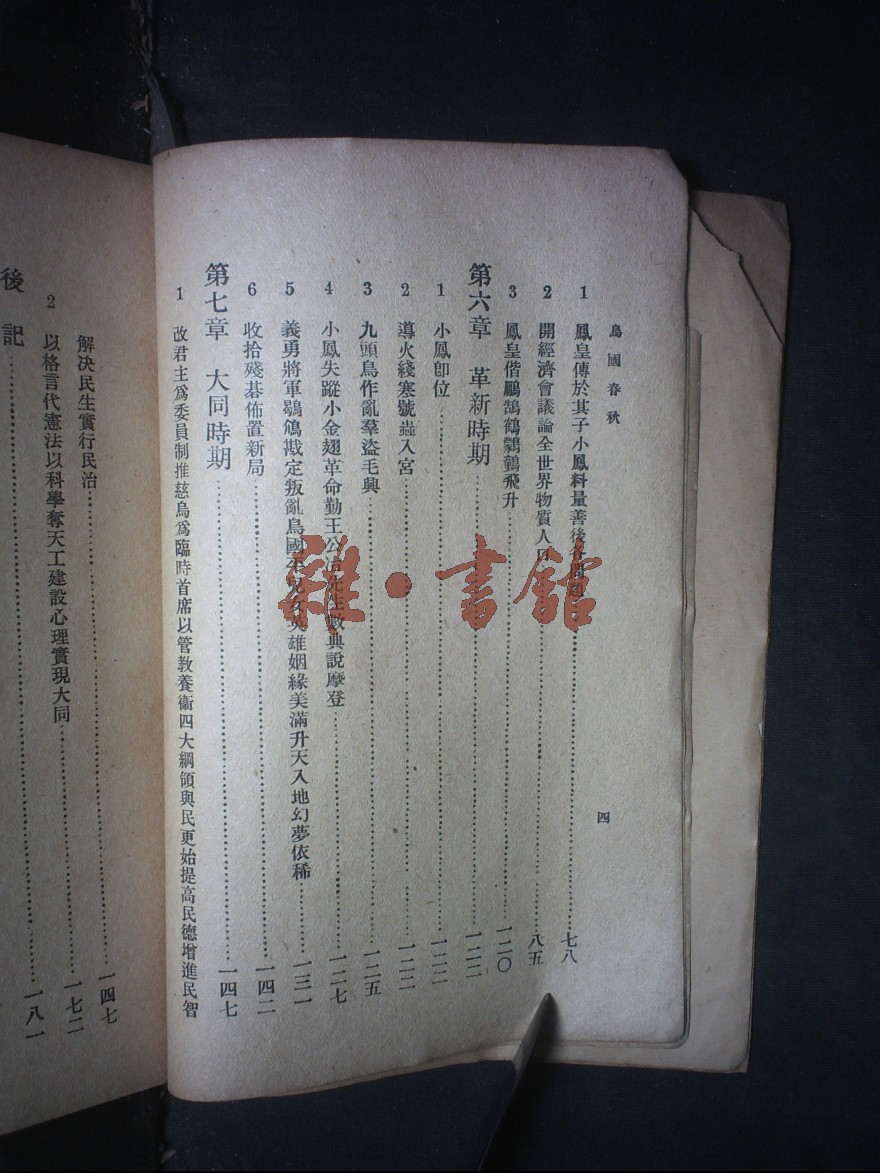 鳥國春秋
四
1 鳳皇傳於其子小鳳料量善後各問題……七八
2 開經濟會議論全世界物質人口……八五
3 鳳皇偕鵬鵠鶴鸚鶉飛升……一二〇
第六章 革新時期……一二二
1 小鳳卽位……一二二
2 導火綫寒號蟲入宮……一二二
3 九頭鳥作亂羣盜毛興……一二五
4 小鳳失蹤小金翅革命勤王公冶先生數典說摩登……一二七
5 義勇將軍鶚鴆戡定叛亂鳥國平兒女英雄姻緣美滿升天入地幻夢依稀……一三一
6 收拾殘棊佈置新局……一四二
第七章 大同時期……一四七
1 改君主爲委員制推慈烏爲臨時首席以管教養衞四大綱領與民更始提高民德增進民智
解决民生實行民治……一四七
2 以格言代憲法以科學奪天工建設心理實現大同……一七二
後記……一八一
雜·書館